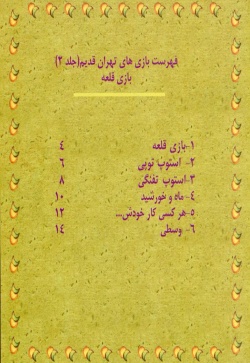 فهرست بازی های تهران قدیم(جلد ۳)
بازی قلعه
۱-بازی قلعه ۴
۲- استوپ توپی ۶
۳-استوپ تفنگی ۸
۴- ماه و خورشید ۱۰
۵-هر کسی کار خودش... ۱۲
۶- وسطی ۱۴